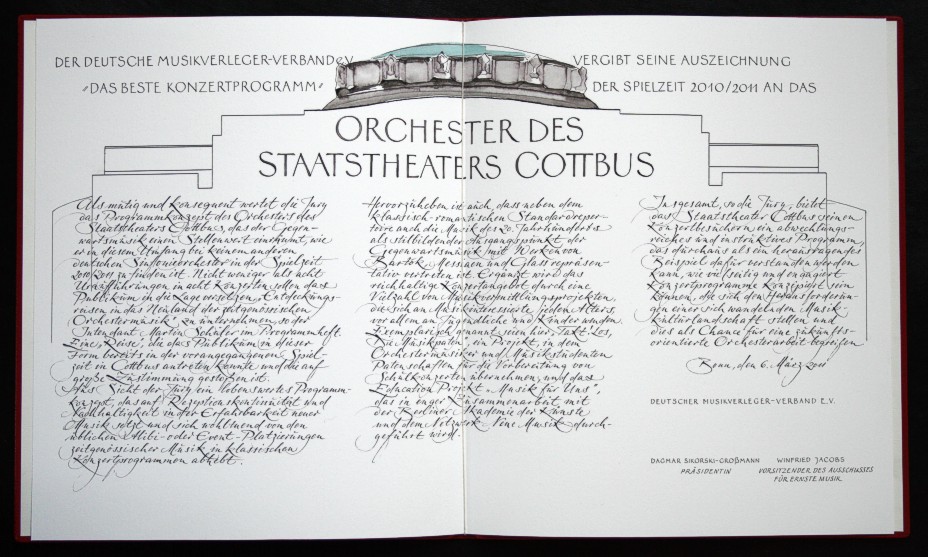 DER DEUTSCHE MUSIKVERLEGER-VERBAND e.V. VERGIBT SEINE AUSZEICHNUNG
„DAS BESTE KONZERTPROGRAMM“ DER SPIELZEIT 2010/2011 AN DAS
ORCHESTER DES
STAATSTHEATERS COTTBUS
Als mutig und konsequent wertet die Jury
das Programmkonzept des Orchesters des
Staatstheaters Cottbus, das der Gegen-
wartsmusik einen Stellenwert einräumt, wie
er in diesem Umfang bei keinem anderen
deutschen Sinfonieorchester in der Spielzeit
2010/2011 zu finden ist. Nicht weniger als acht
Uraufführungen in acht Konzerten sollen das
Publikum in die Lage versetzen, „Entdeckungs-
reisen in das Neuland der zeitgenössischen
Orchestermusik“ zu unternehmen, so der
Intendant Martin Schüler im Programmheft.
Eine „Reise“, die das Publikum in dieser
Form bereits in der vorangegangenen Spiel-
zeit in Cottbus antreten konnte und die auf
große Zustimmung gestoßen ist.
Aus Sicht der Jury ein lobenswertes Programm-
konzept, das auf Rezeptionskontinuität und
Nachhaltigkeit in der Erfahrbarkeit neuer
Musik setzt und sich wohltuend von den
üblichen Alibi- oder Event-Platzierungen
zeitgenössischer Musik in klassischen
Konzertprogrammen abhebt.
Hervorzuheben ist auch, dass neben dem
klassisch-romantischen Standardreper-
toire auch die Musik des 20. Jahrhunderts
als stilbildender Ausgangspunkt der
Gegenwartsmusik mit Werken von
Bartók, Messiaen und Glass repräsen-
tativ vertreten ist. Ergänzt wird das
reichhaltige Konzertangebot durch eine
Vielzahl von Musikvermittlungsprojekten,
die sich an Musikinteressierte jeden Alters,
vor allem an Jugendliche und Kinder wenden.
Exemplarisch genannt seien hier „Takt-Los,
Die Musikpaten“, ein Projekt, in dem
Orchestermusiker und Musikstudenten
Patenschaften für die Vorbereitung von
Schulkonzerten übernehmen, und das
Education Projekt „Musik für Uns“,
das in enger Zusammenarbeit mit
der Berliner Akademie der Künste
und dem Netzwerk Neue Musik durch-
geführt wird.
Insgesamt, so die Jury, bietet
das Staatstheater Cottbus seinen
Konzertbesuchern ein abwechlungs-
reiches und instruktives Programm,
das durchaus als ein herausragendes
Beispiel dafür verstanden werden
kann, wie vielseitig und engagiert
Konzertprogramme konzipiert sein
können, die sich den Herausforderun-
gen einer sich wandelnden Musik-
Kulturlandschaft stellen und
dies als Chance für eine zukunfts-
orientierte Orchesterarbeit begreifen.
Bonn, den 6. März 2011
DEUTSCHER MUSIKVERLEGER-VERBAND E.V.
DAGMAR SIKORSKI-GROßMANN WINFRIED JACOBS
PRÄSIDENTIN VORSITZENDER DES AUSSCHUSSES
FÜR ERNSTE MUSIK